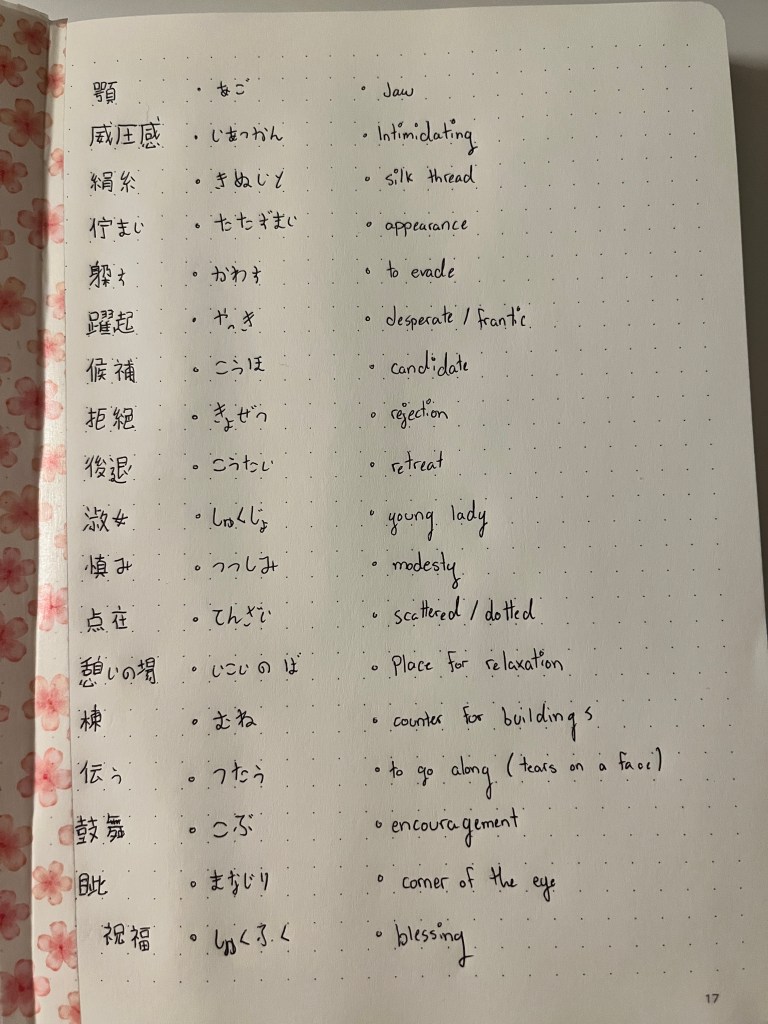 顎 • あご • Jaw
威圧感 • いあっかん • Intimidating
絹糸 • きぬいと • silk thread
佇まい • たたずまい • appearance
躱す • かわす • to evade
躍起 • やっき • desperate / frantic
候補 • こうほ • candidate
拒絶 • きょぜつ • rejection
後退 • こうたい • retreat
淑女 • しゅくじょ • young lady
慎み • つつしみ • modesty
点在 • てんざい • scattered / dotted
憩いの場 • いこいの ば • Place for relaxation
棟 • むね • counter for buildings
伝う • つたう • to go along (tears on a face)
鼓舞 • こぶ • encouragement
眦 • まなじり • corner of the eye
祝福 • しゅくふく • blessing
17